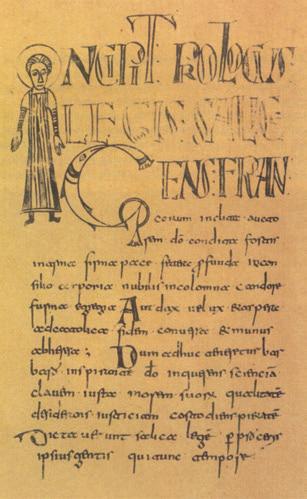 INCIPIT PROLOGUS
LEGIS SALICE
GENS FRAN
corum inclita aucto
re dō condita fortis
in arma firma pace fetere profunda in con
silio corporia nobilis incolomna candore
forma egregia Audax velox et aspera
ad catholica fidem conversa et inmunis
ab herese; Dum adhuc teneretur bar
bara inspirante dō inquerens sciencia
clavem iusta morem suorum qualitate
desiderans iusticiam custodiens pietatem
Dictaverunt salica lege per proceris
ipsius gentis qui tunc tempore